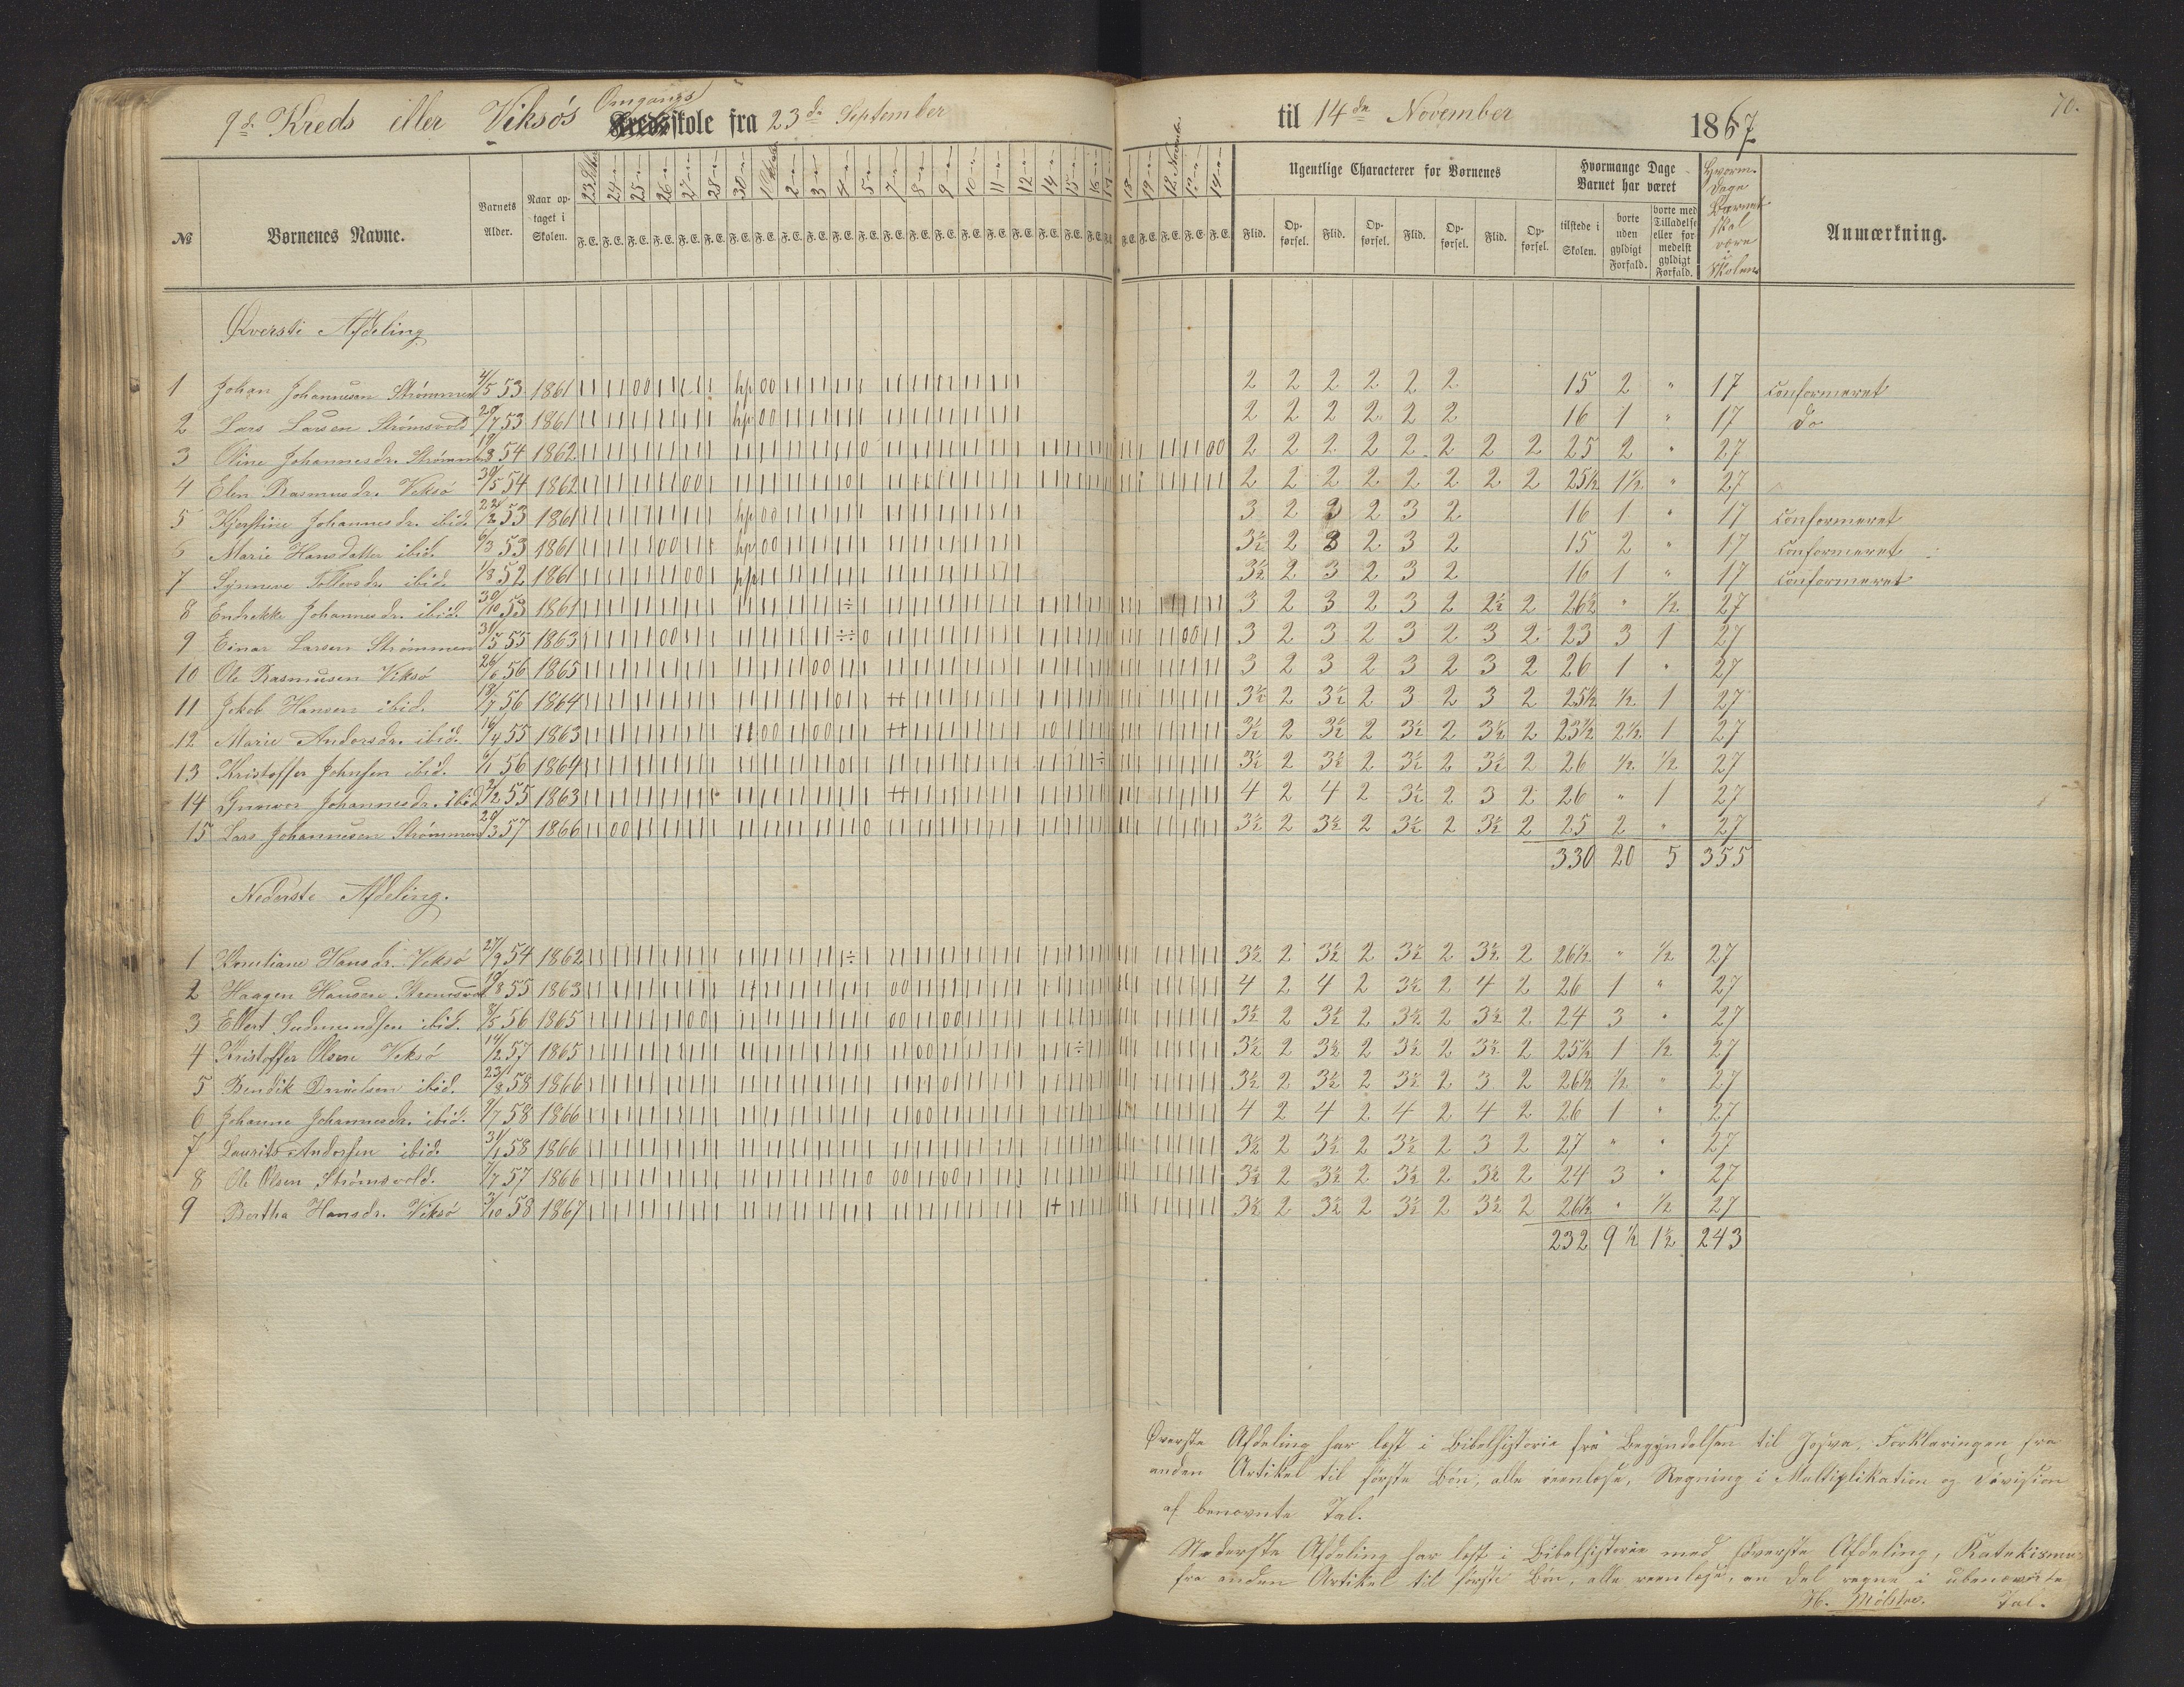 9de Kreds eller Viksøs Omgangsskole fra 23de September til 14de November 1867
70.
№ Børnenes Navne. Barnets Alder. Naar optaget i Skolen. Ugentlige Characterer for Børnenes Hvormange Dage Barnet har været Hvorm. Dage Barnet skal være i Skolen Anmærkning.
Flid. Opførsel. Flid. Opførsel. Flid. Opførsel. Flid. Opførsel. tilstede i Skolen. borte uden gyldigt Forfald. borte med Tilladelse eller formedelst gyldigt Forfald.
Øverste Afdeling
1 Johan Johannesen Strømmen 4/5 53 1861 2 2 2 2 2 2 15 2 " 17 Conformeret
2 Lars Larsen Strømsvold 29/7 53 1861 2 2 2 2 2 2 16 1 " 17 Do
3 Oline Johannesdr. Strømmen 54 1862 2 2 2 2 2 2 2 2 25 2 " 27
4 Elen Rasmusdr. Viksø 30/5 54 1862 2 2 2 2 2 2 2 2 25½ 1½ " 27
5 Kjerstine Johannesdr. ibid. 53 1861 3 2 3 2 3 2 16 1 " 17 Conformeret
6 Marie Hansdatter ibid. 6/3 53 1861 3½ 2 3 2 3 2 15 2 " 17 Conformeret
7 Synneve Tollevsdr. ibid. 1/8 52 1861 3½ 2 3 2 3 2 16 1 " 17 Conformeret
8 Endrekke Johannesdr. ibid. 30/10 53 1861 3 2 3 2 3 2 2½ 2 26½ " ½ 27
9 Einar Larsen Strømmen 55 1863 3 2 3 2 3 2 3 2 23 3 1 27
10 Ole Rasmusen Viksø 26/6 56 1865 3 2 3 2 3 2 3 2 26 1 " 27
11 Jakob Hansen ibid. 18/7 56 1864 3½ 2 3½ 2 3 2 3 2 25½ ½ 1 27
12 Marie Andersdr. ibid. 16/4 55 1863 3½ 2 3½ 2 3½ 2 3½ 2 23½ 2½ 1 27
13 Kristoffer Johnsen ibid. 6/1 56 1864 3½ 2 3½ 2 3½ 2 3½ 2 26 ½ ½ 27
14 Gunvor Johannesdr. ibid 55 1863 4 2 4 2 3½ 2 3 2 26 " 1 27
15 Lars Johannesen Strømmen 29/3 57 1866 3½ 2 3½ 2 3½ 2 3½ 2 25 2 " 27
330 20 5 355
Nederste Afdeling.
1 Hansdr. Viksø 27/9 54 1862 3½ 2 3½ 2 3½ 2 3½ 2 26½ " ½ 27
2 Haagen Hansen 19/8 55 1863 4 2 4 2 3½ 2 4 2 26 1 " 27
3 Ellert Gudmundsen ibid. 56 1865 3½ 2 3½ 2 3½ 2 3½ 2 24 3 " 27
4 Kristoffer Olsen Viksø 14/2 57 1865 3½ 2 3½ 2 3½ 2 3½ 2 25½ 1 ½ 27
5 Bendik Danielsen ibid. 23/8 58 1866 3½ 2 3½ 2 3½ 2 3 2 26½ ½ " 27
6 Johanne Johannesdr. ibid. 58 1866 4 2 4 2 4 2 4 2 26 1 " 27
7 Laurits Andersen ibid. 31/1 58 1866 3½ 2 3½ 2 3½ 2 3 2 27 " " 27
8 Ole Olsen Strømsvold. 7/7 57 1866 3½ 2 3½ 2 3½ 2 3½ 2 24 3 " 27
9 Bertha Hansdr. Viksø 3/10 58 1867 3½ 2 3½ 2 3½ 2 3½ 2 26½ " ½ 27
232 9½ 1½ 243
Øverste Afdeling har læst i Bibelhistorie fra Begyndelsen til Josva, Forklaringen fra
anden Artikel til første Bøn, alle reenlæse, Regning i Multiplikation og Division
af benævnte Tal.
Nederste Afdeling har læst i Bibelhistorie med Øverste Afdeling, Katekismus
fra anden Artikel til første Bøn, alle reenlæse, en Del regne i ubenævnte
H. Mølster. Tal.